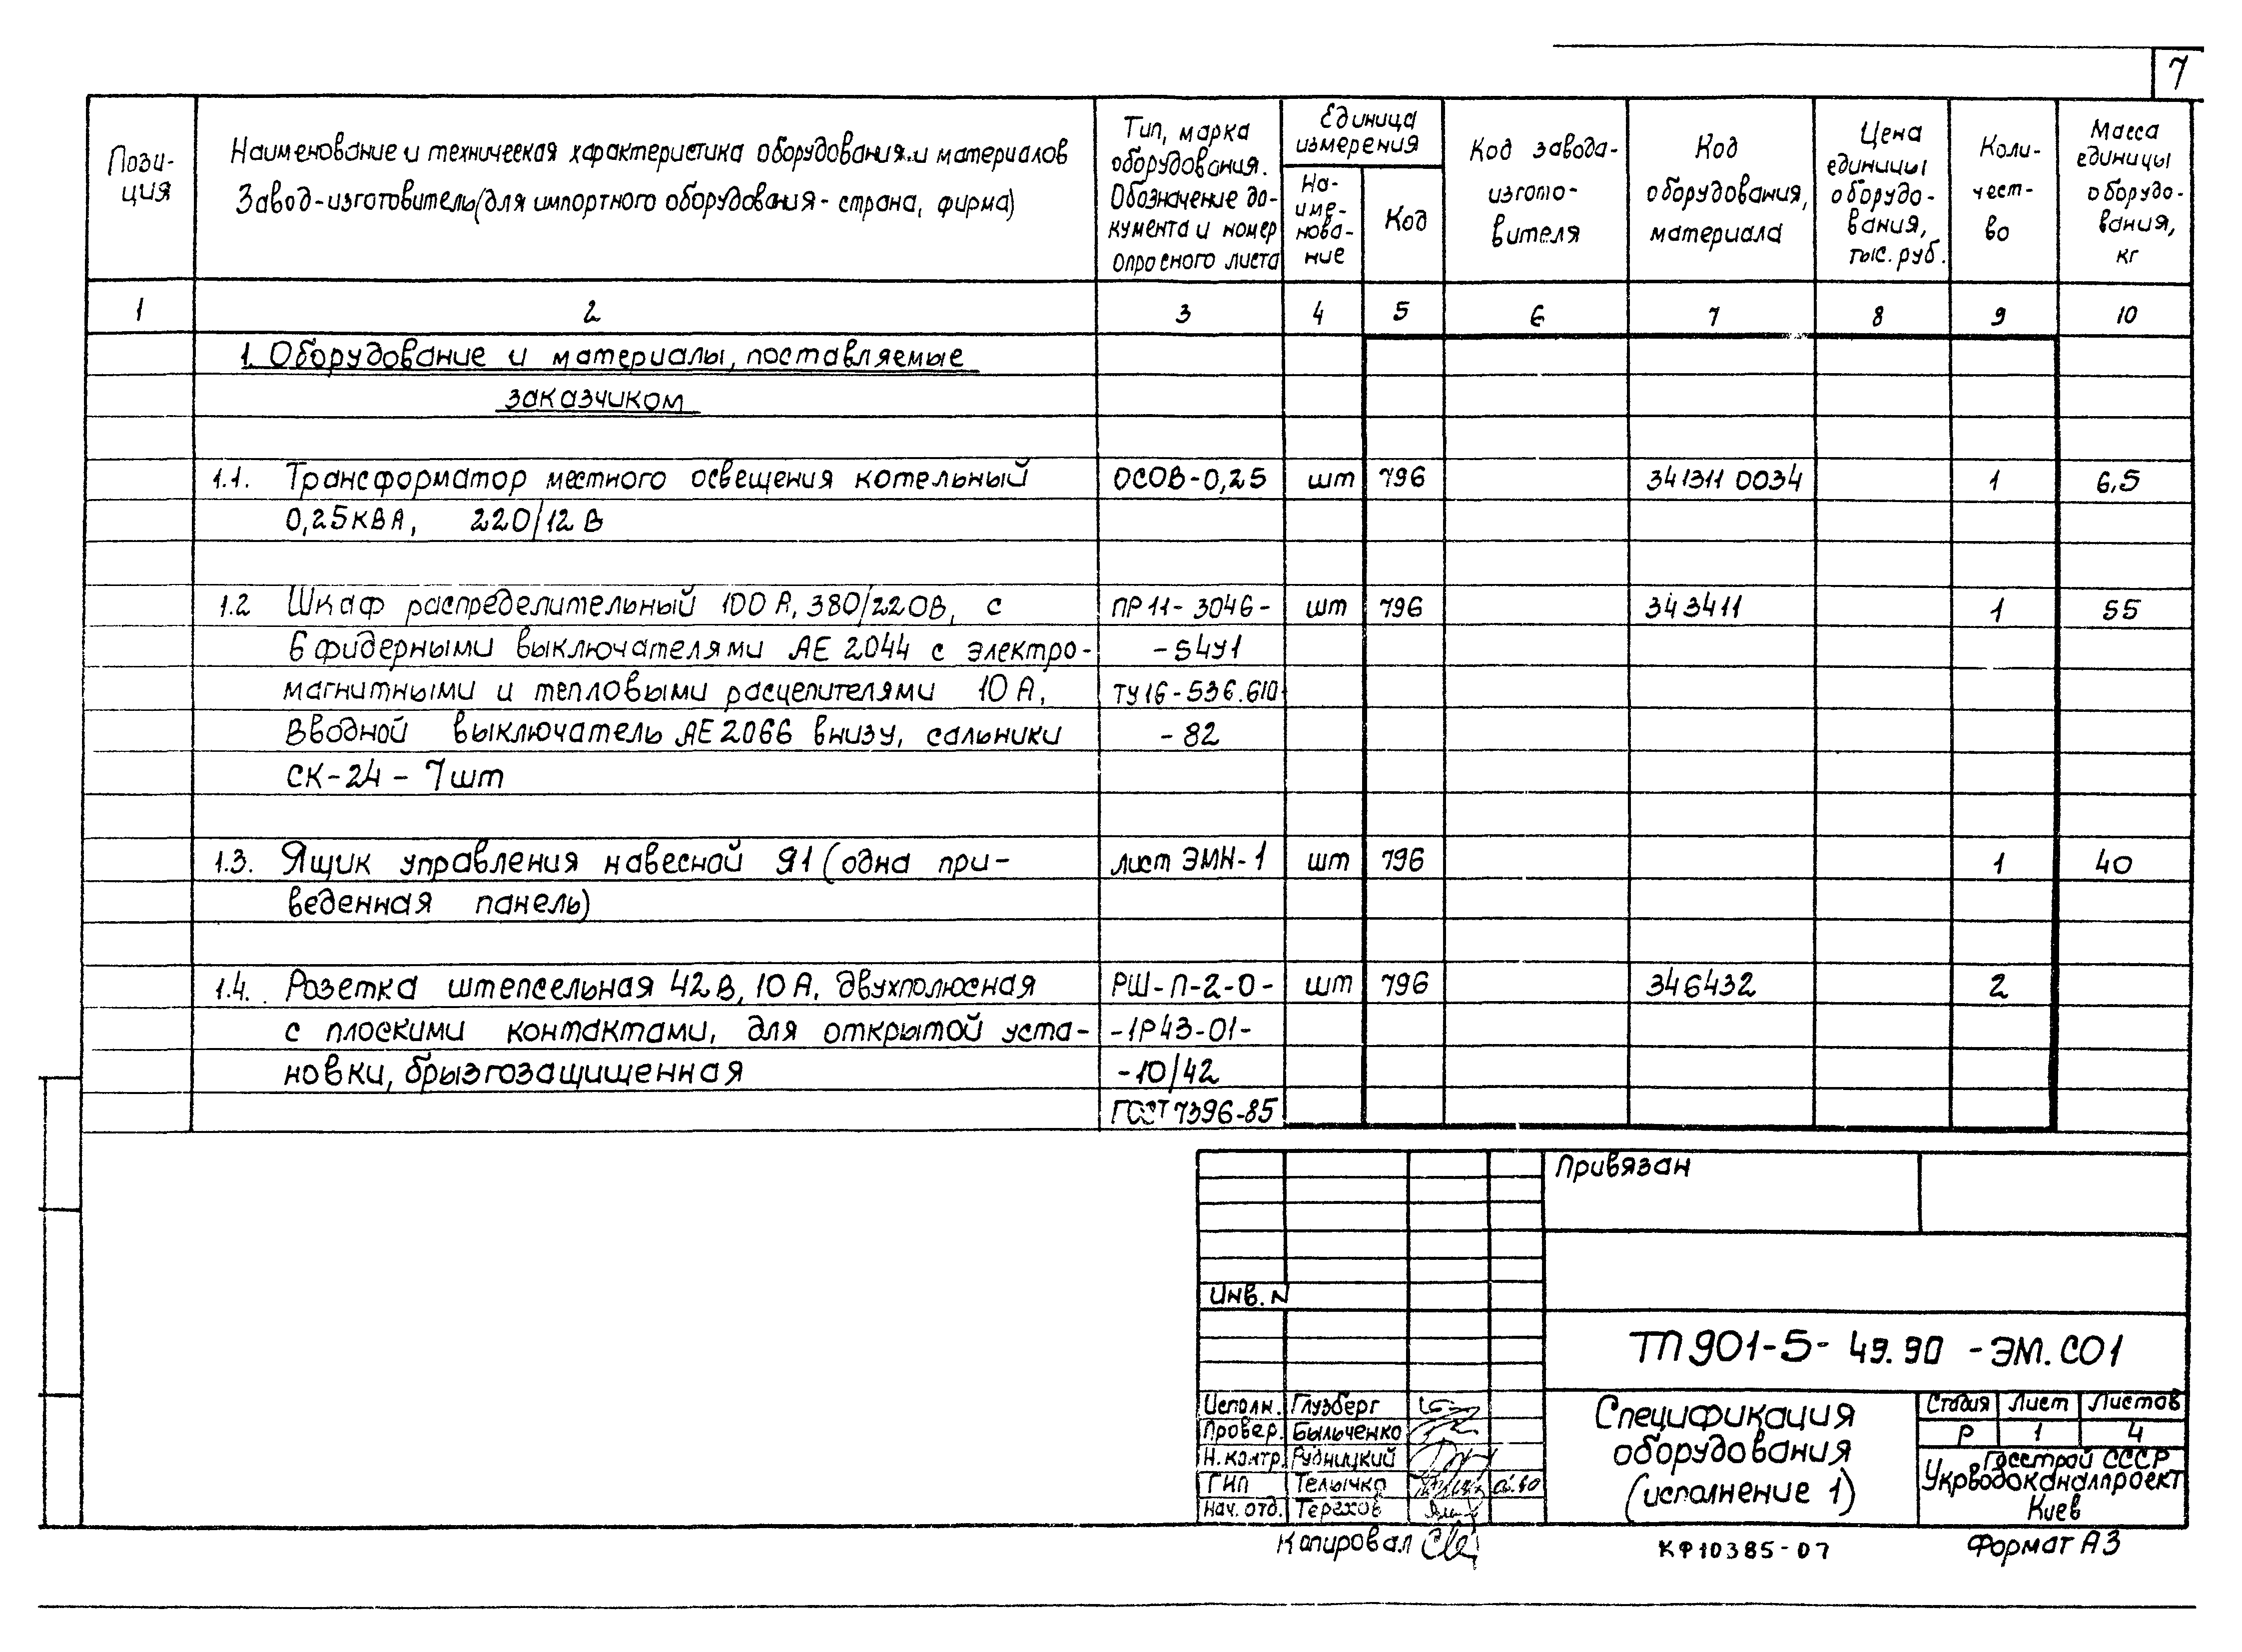 7
Пози-
ция
Наименование и техническая характеристика оборудования и материалов
Завод-изготовитель (для импортного оборудования - страна, фирма)
Тип, марка
оборудования.
Обозначение до-
кумента и номер
опросного листа
Единица
измерения
На-
име-
нова-
ние
Код
Код завода-
изгото-
вителя
Код
оборудования,
материала
Цена
единицы
оборудо-
вания,
тыс. руб.
Коли-
чест-
во
Масса
единицы
оборудо-
вания,
кг
1 2 3 4 5 6 7 8 9 10
1. Оборудование и материалы, поставляемые
заказчиком
1.1. Трансформатор местного освещения котельный ОСОВ-0,25 шт 796 341311 0034 1 6,5
0,25КВА, 220/12 В
1.2 Шкаф распределительный 100 А, 380/220В, с ПР11-3046- шт 796 343411 1 55
6 фидерными выключателями АЕ 2044 с электро- -54У1
магнитными и тепловыми расцепителями 10 А, ТУ16-536.610
Вводной выключатель АЕ2066 внизу, сальники -82
СК-24 - 7шт
1.3. Ящик управления навесной Я1 (одна при- лист ЭМН-1 шт 796 1 40
веденная панель)
1.4. Розетка штепсельная 42В, 10 А, двухполюсная РШ-П-2-0- шт 796 346432 2
с плоскими контактами, для открытой уста- -1Р43-01-
новки, брызгозащищенная -10/42
ГОСТ 7396-85
Привязан
Инв. N
ТП 901-5-49.90 -ЭМ.СО1
Исполн. Глузберг
Провер. Быльченко
Н.контр. Рудницкий
ГИП Телычко
Нач. отд. Терехов
Спецификация
оборудования
(исполнение 1)
Стадия Лист Листов
Р 1 4
Госстрой СССР
Укрводоканалпроект
Киев
Копировал
КФ10385-07
Формат А3